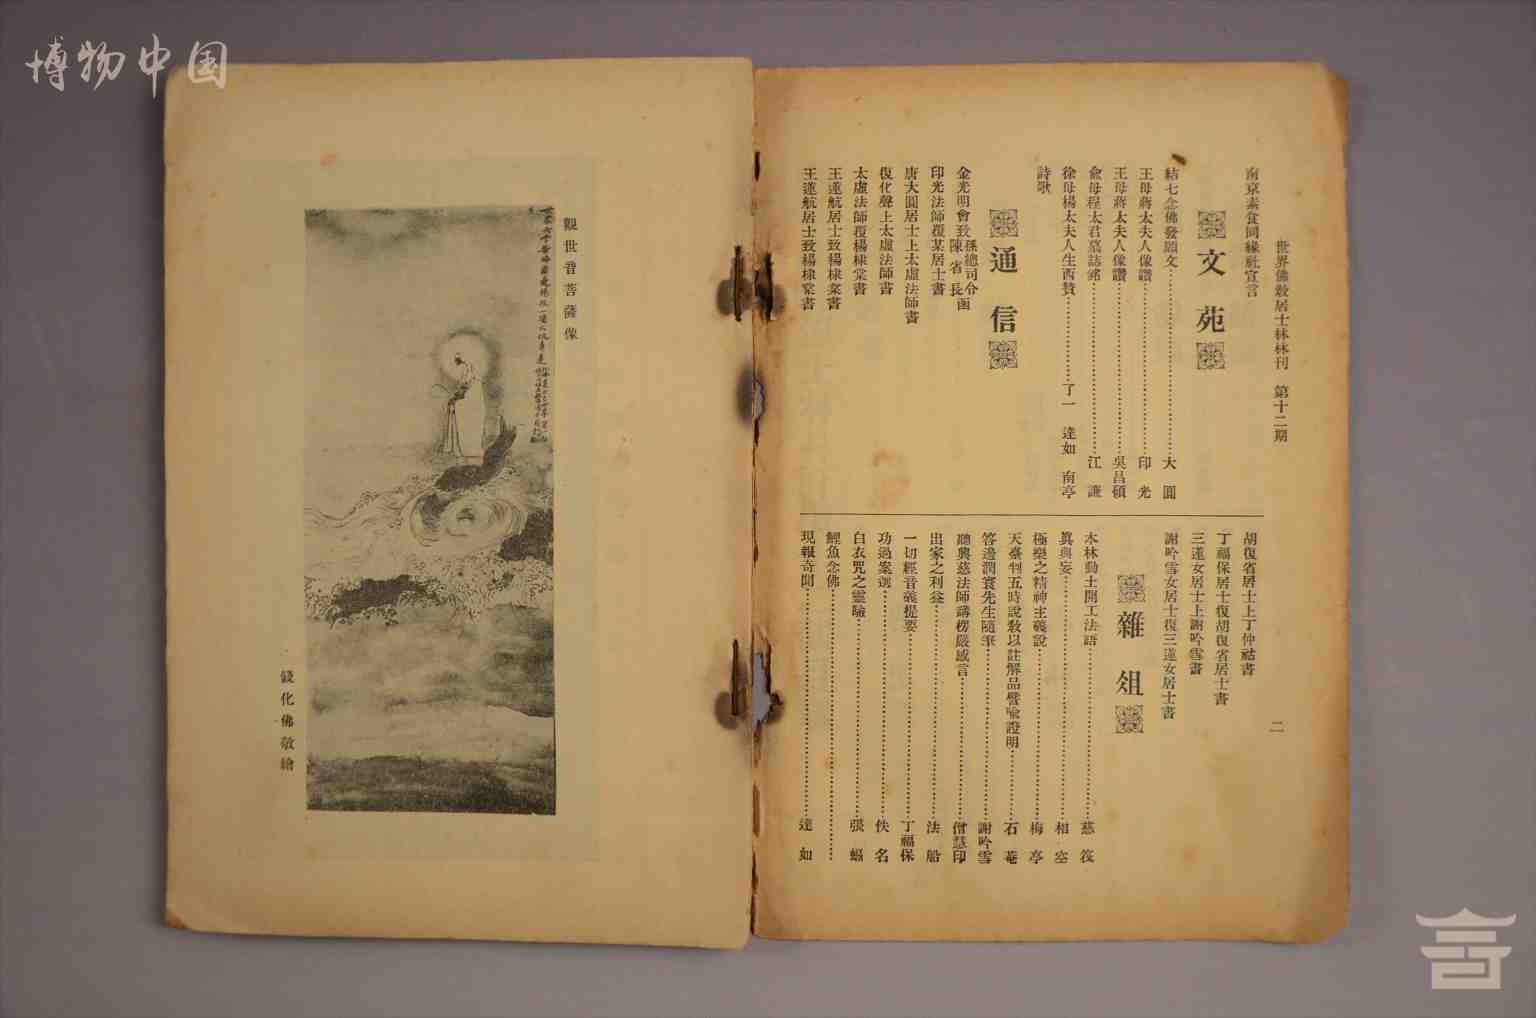 博物中国
世界佛教居士林林刊 第十二期 二
南京素食同緣社宣言
文苑
結七念佛發願文 大圓
王母蔣太夫人像讚 印光
王母蔣太夫人像讚 吳昌碩
俞母程太君墓誌銘 江謙
徐母楊太夫人生西贊 了一 達如 南亭
詩歌
通信
金光明會致孫總司令陳省長函
印光法師覆某居士書
唐大圓居士上太虛法師書
復化聲上太虛法師書
太虛法師覆楊棣棠書
王蓮航居士致楊棣棠書
王蓮航居士致楊棣棠書
胡復省居士上丁仲祜書
丁福保居士復胡復省居士書
三蓮女居士上謝吟雪書
謝吟雪女居士復三蓮女居士書
雜俎
本林動土開工法語 慈筏
眞與妄 相空
極樂之精神主義說 梅亭
天臺判五時說教以註解品譬喩證明 石菴
答邊潤寰先生隨筆 謝吟雪
聽興慈法師講楞嚴感言 僧慧印
出家之利益 法船
一切經音義提要 丁福保
功過案 佚名
白衣咒之靈驗 張
鯉魚念佛
現報奇聞 達如
觀世音菩薩像
錢化佛敬繪